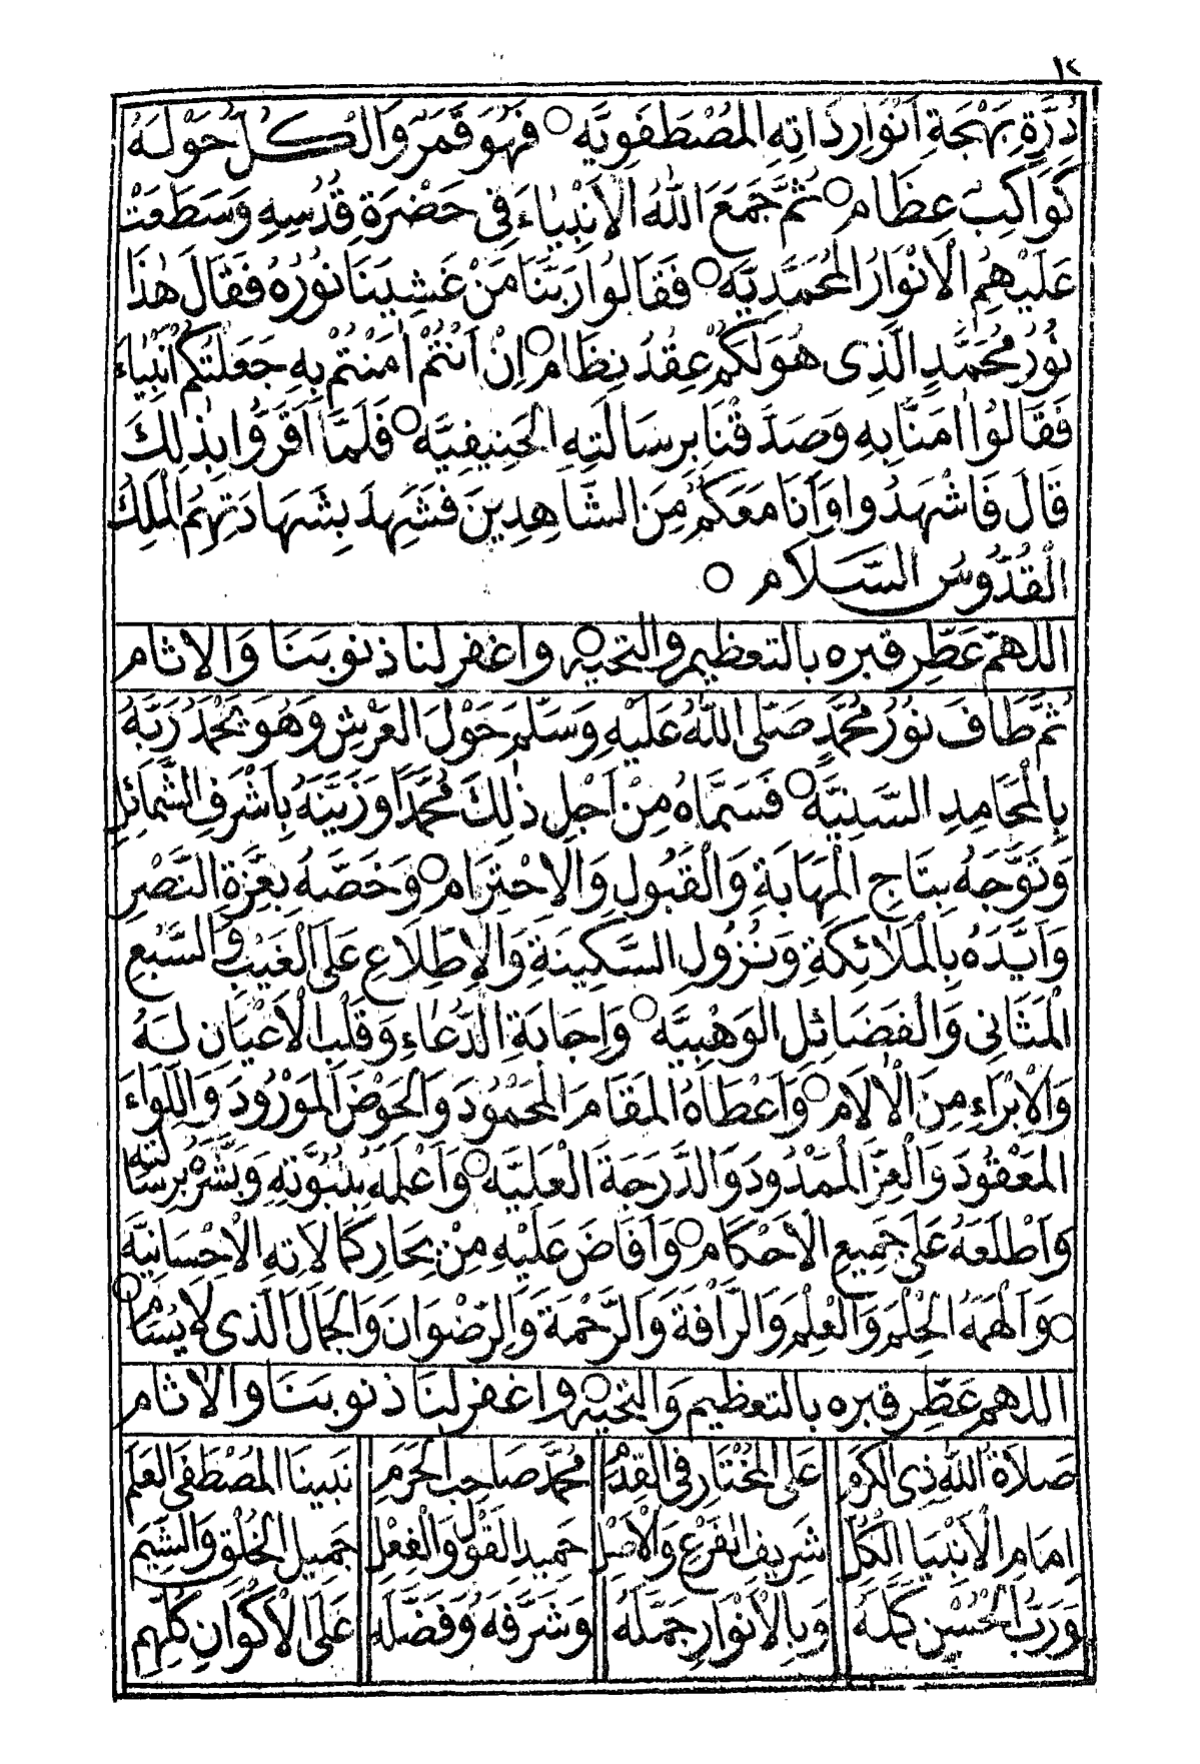 ١٢
دُرَّةِ بَهْجَةِ اَنْوَارِ ذَاتِهِ الْمُصْطَفَوِيَّه ○ فَهُوَ قَمَرٌ وَالْكُلُّ حَوْلَهُ
كَوَاكِبٌ عِظَام ○ ثُمَّ جَمَعَ اللّٰهُ الْاَنْبِيَاءَ فِى حَضْرَةِ قُدْسِهِ وَسَطَعَتْ
عَلَيْهِمُ الْاَنْوَارُ الْمُحَمَّدِيَّه ○ فَقَالُوا رَبَّنَا مَنْ غَشِيَنَا نُورُهُ فَقَالَ هٰذَا
نُورُ مُحَمَّدٍ الَّذِى هُوَ لَكُمْ عِقْدُ نِظَام ○ اِنْ اَنْتُمْ اٰمَنْتُمْ بِهِ جَعَلْتُكُمْ اَنْبِيَاءَ
فَقَالُوا اٰمَنَّا بِهِ وَصَدَّقْنَا بِرِسَالَتِهِ الْحَنِيفِيَّه ○ فَلَمَّا اَقَرُّوا بِذٰلِكَ
قَالَ فَاشْهَدُوا وَاَنَا مَعَكُمْ مِنَ الشَّاهِدِينَ فَشَهِدَ بِشَهَادَتِهِمُ الْمَلِكُ
الْقُدُّوسُ السَّلَام ○
اللهم عَطِّر قبره بالتعظيم والتحيه ○ واغفر لنا ذنوبنا وَالاثام
ثُمَّ طَافَ نُورُ مُحَمَّدٍ صَلَّى اللّٰهُ عَلَيْهِ وَسَلَّمَ حَوْلَ الْعَرْشِ وَهُوَ يَحْمَدُ رَبَّهُ
بِالْمَحَامِدِ السَّنِيَّه ○ فَسَمَّاهُ مِنْ اَجْلِ ذٰلِكَ مُحَمَّدًا وَزَيَّنَهُ بِاَشْرَفِ الشَّمَائِلِ
وَتَوَّجَهُ بِتَاجِ الْمَهَابَةِ وَالْقَبُولِ وَالْاِحْتِرَام ○ وَخَصَّهُ بِعِزَّةِ النَّصْرِ
وَاَيَّدَهُ بِالْمَلَائِكَةِ وَنُزُولِ السَّكِينَةِ وَالْاِطِلَاعِ عَلَى الْغَيْبِ وَالسَّبْعِ
الْمَثَانِى وَالْفَضَائِلِ الْوَهْبِيَّه ○ وَاِجَابَةِ الدُّعَاءِ وَقَلْبِ الْاَعْيَانِ لَهُ
وَالْاِبْرَاءِ مِنَ الْاٰلَام ○ وَاَعْطَاهُ الْمَقَامَ الْمَحْمُودَ وَالْحَوْضَ الْمَوْرُودَ وَاللِّوَاءَ
الْمَعْقُودَ وَالْعِزَّ الْمَمْدُودَ وَالدَّرَجَةَ الْعَلِيَّه ○ وَاَعْلَمَهُ بِنُبُوَّتِهِ وَبَشَّرَهُ بِرِسَالَتِهِ
وَاَطْلَعَهُ عَلَى جَمِيعِ الْاَحْكَام ○ وَاَفَاضَ عَلَيْهِ مِنْ بِحَارِ كَمَالَاتِهِ الْاِحْسَانِيَّه
○ وَاَلْهَمَهُ الْحِلْمَ وَالْعِلْمَ وَالرَّافَةَ وَالرَّحْمَةَ وَالرِّضْوَانَ وَالْجَمَالَ الَّذِى لَا يُسَام ○
اللهم عَطِّر قبره بالتعظيم وَالتحيه ○ واغفر لنَا ذنوبنَا والاثام
صَلَاةُ اللّٰهِ ذِى الْكَرَمِ عَلَى الْمُخْتَارِ فِى الْقِدَمِ مُحَمَّدْ صَاحِبِ الْحَرَمِ نَبِينَا الْمُصْطَفَى الْعَلَمِ
اِمَامِ الْاَنْبِيَا الْكُلِّ شَرِيفِ الْفَرْعِ وَالْاَصْلِ حَمِيدِ الْقَوْلِ وَالْفِعْلِ جَمِيلِ الْخُلْقِ وَالشِّيَمِ
وَرَبُّ الْحُسْنِ كَمَّلَهُ وَبِالْاَنْوَارِ جَمَّلَهُ وَشَرَّفَهُ وَفَضَّلَهُ عَلَى الْاَكْوَانِ كُلِّهِمِ